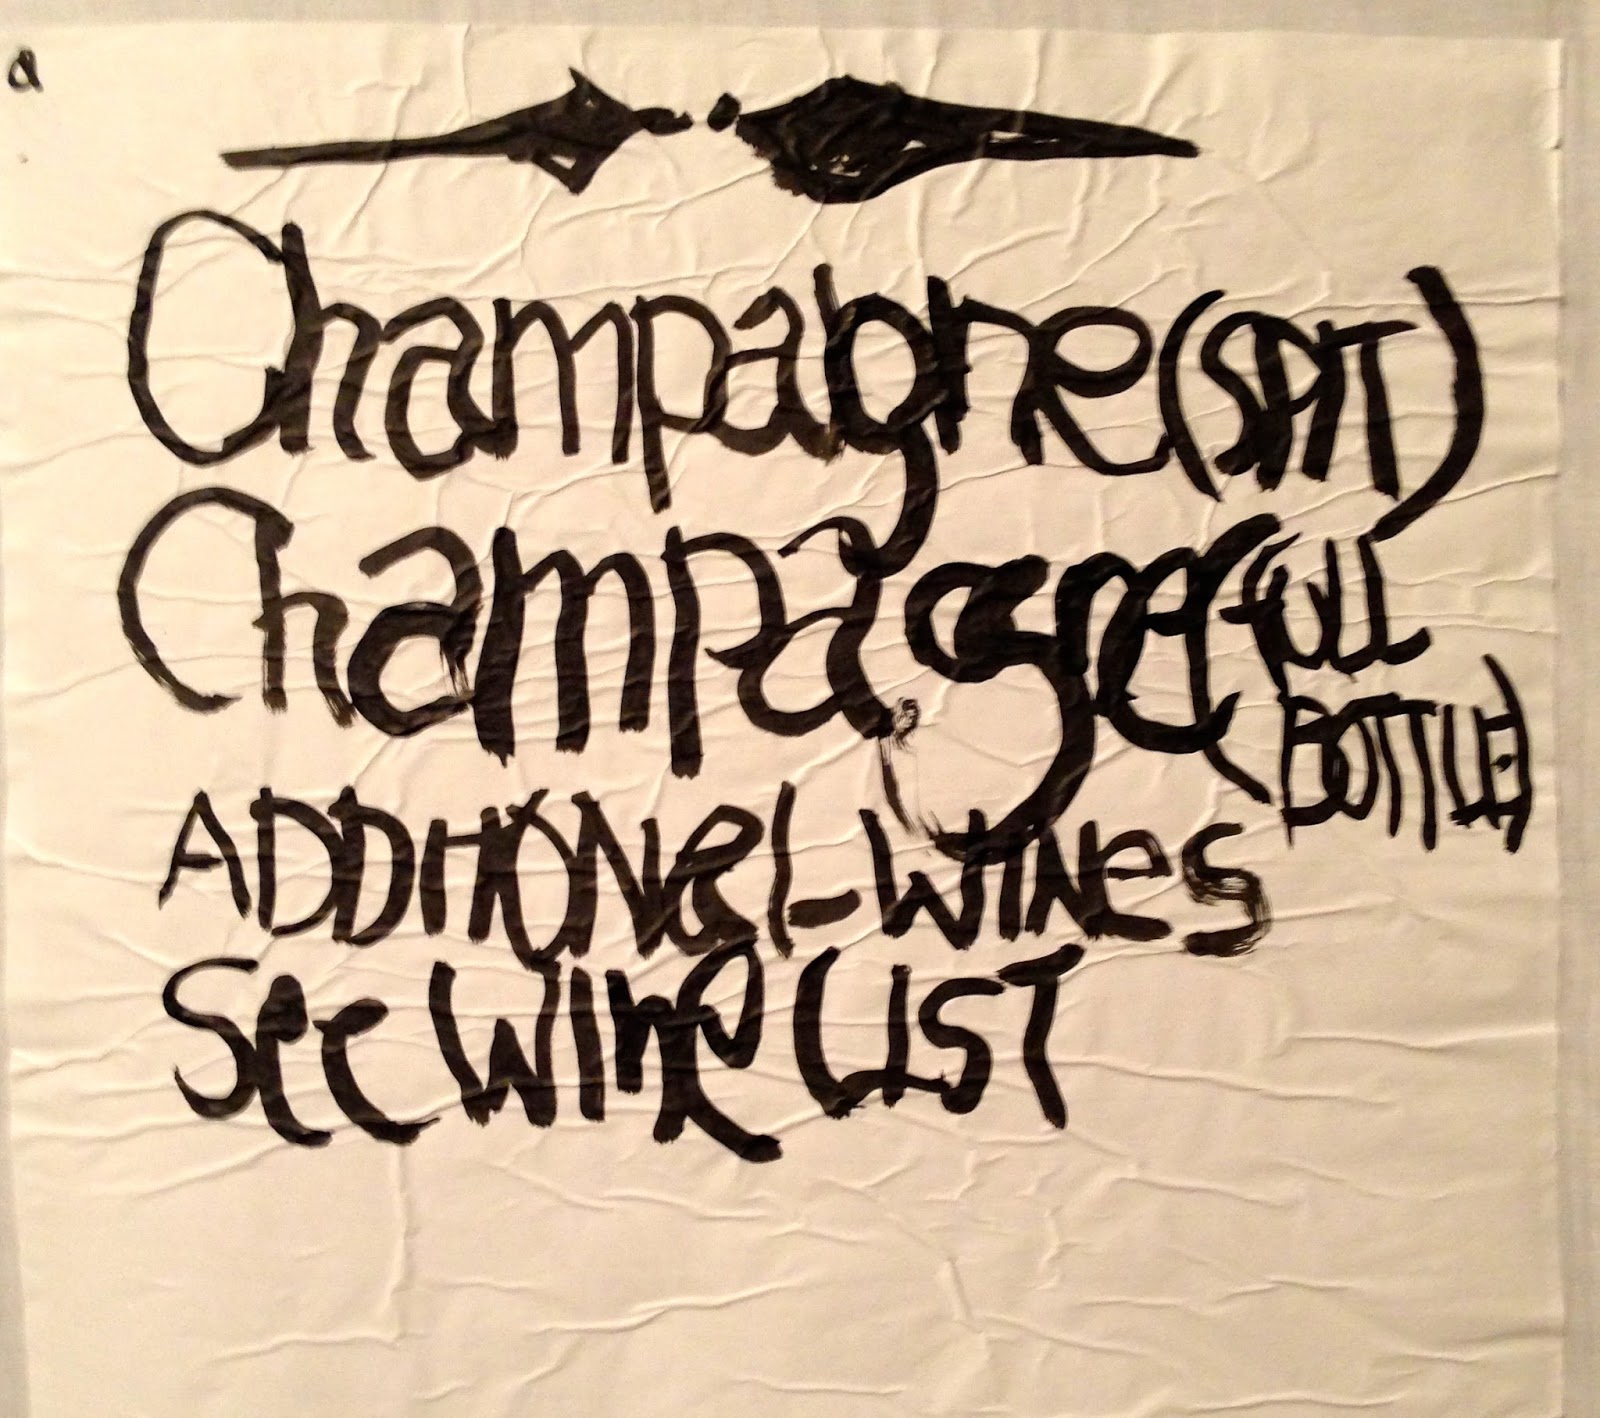 a
Champagne (SPIT)
Champagne (full
BOTTLE)
ADDITIONal - WINes
See Wine LIST